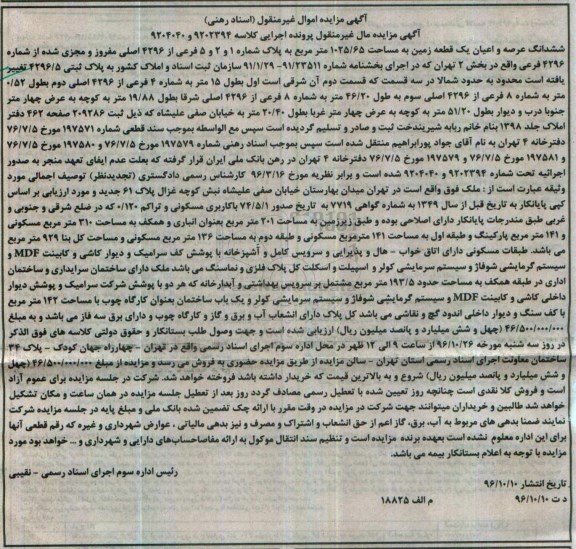 آگهی مزایده اموال غیرمنقول (اسناد رهنی)
آگهی مزایده مال غیرمنقول پرونده اجرایی کلاسه ۹۲۰۲۳۹۴ و ۹۲۰۴۰۴۰
ششدانگ عرصه و اعیان یک قطعه زمین به مساحت ۱۰۲۵/۶۵ متر مربع به پلاک شماره ۱ و ۲ و ۵ فرعی از ۴۲۹۶ اصلی مفروز و مجزی شده از شماره
۴۲۹۶ فرعی واقع در بخش ۲ تهران که در اجرای بخشنامه شماره ۹۱/۲۳۵۱۱ – ۹۱/۱/۲۹ سازمان ثبت اسناد و املاک کشور به پلاک ثبتی ۴۲۹۶/۵ تغییر
یافته است محدود به حدود شمالا در سه قسمت که قسمت دوم آن شرقی است اول بطول ۱۵ متر به شماره ۴ فرعی از ۴۲۹۶ اصلی دوم بطول ۰/۵۲
متر به شماره ۸ فرعی از ۴۲۹۶ اصلی سوم به طول ۴۶/۲۰ متر به شماره ۸ فرعی از ۴۲۹۶ اصلی شرقا بطول ۱۹/۸۸ متر به کوچه به عرض چهار متر
جنوبا درب و دیوار بطول ۵۱/۲۰ متر به کوچه به عرض چهار متر غربا بطول ۲۰/۴۰ متر به خیابان صفی علیشاه که ذیل ثبت ۲۰۹۲۸۶ صفحه ۴۶۲ دفتر
املاک جلد ۱۳۹۸ بنام خانم ربابه شیریندخت ثبت و صادر و تسلیم گردیده است سپس مع الواسطه بموجب سند قطعی شماره ۱۹۷۵۷۱ مورخ ۷۶/۷/۵
دفترخانه ۴ تهران به نام آقای جواد پورابراهیم منتقل شده است سپس بموجب اسناد رهنی شماره ۱۹۷۵۷۹ مورخ ۷۶/۷/۵ و ۱۹۷۵۸۰ مورخ ۷۶/۷/۵
و ۱۹۷۵۸۱ مورخ ۷۶/۷/۵ و ۱۹۷۵۷۹ مورخ ۷۶/۷/۵ دفترخانه ۴ تهران در رهن بانک ملی ایران قرار گرفته که بعلت عدم ایفای تعهد منجر به صدور
اجرائیه تحت شماره ۹۲۰۲۳۹۴ و ۹۲۰۴۰۴۰ شده است و برابر نظریه مورخ ۹۶/۳/۱۶ کارشناس رسمی دادگستری (تجدیدنظر) توصیف اجمالی مورد
وثیقه عبارت است از : ملک فوق واقع است در تهران میدان بهارستان خیابان صفی علیشاه نبش کوچه غزال پلاک ۶۱ جدید و مورد ارزیابی بر اساس
کپی پایانکار به تاریخ قبل از سال ۱۳۴۹ به شماره گواهی ۷۷۱۹ به تاریخ صدور ۷۴/۵/۱ باکاربری مسکونی و تراکم ۰/۱۲۰ که در ضلع شرقی و جنوبی و
غربی طبق مندرجات پایانکار دارای اصلاحی بوده و طبق زیرزمین به مساحت ۲۰۱ متر مربع بعنوان انباری و همکف به مساحت ۳۱۰ متر مربع مسکونی
و ۱۴۱ متر مربع پارکینگ و طبقه اول به مساحت ۱۴۱ مترمربع مسکونی و طبقه دوم به مساحت ۱۳۶ متر مربع مسکونی و مساحت کل بنا ۹۲۹ متر مربع
می باشد. طبقات مسکونی دارای اتاق خواب – هال و پذیرایی و سرویس کامل و آشپزخانه با پوشش کف سرامیک و دیوار کاشی و کابینت MDF و
سیستم گرمایشی شوفاژ و سیستم سرمایشی کولر و اسپیلت و اسکلت کل پلاک فلزی و نماسنگ می باشد ملک دارای ساختمان سرایداری و ساختمان
اداری در طبقه همکف به مساحت حدود ۱۹۳/۵ متر مربع مشتمل بر سرویس بهداشتی و آبدارخانه که هر دو با پوشش شرکت سرامیک و پوشش دیوار
داخلی کاشی و کابینت MDF و سیستم گرمایشی شوفاژ و سیستم سرمایشی کولر و یک باب ساختمان بعنوان کارگاه چوب با مساحت ۱۴۲ متر مربع
با کف سنگ و دیوار داخلی اندود گچ و نقاشی می باشد کل پلاک دارای انشعاب آب و برق و گاز و کارگاه چوب و دارای برق سه فاز می باشد و به مبلغ
۴۶/۵۰۰/۰۰۰/۰۰۰ (چهل و شش میلیارد و پانصد میلیون ریال) ارزیابی شده است و جهت وصول طلب بستانکار و حقوق دولتی کلاسه های فوق الذکر
در روز سه شنبه مورخه ۹۶/۱۰/۲۶ از ساعت ۹ الی ۱۲ ظهر در محل اداره سوم اجرای اسناد رسمی واقع در تهران – چهارراه جهان کودک – پلاک ۳۴
ساختمان معاونت اجرای اسناد رسمی استان تهران – سالن مزایده از طریق مزایده حضوری به فروش می رسد و مزایده از مبلغ ۴۶/۵۰۰/۰۰۰/۰۰۰ (چهل
و شش میلیارد و پانصد میلیون ریال) شروع و به بالاترین قیمت که خریدار داشته باشد فروخته خواهد شد. شرکت در جلسه مزایده برای عموم آزاد
است و فروش کلا نقدی است چنانچه روز تعیین شده با تعطیل رسمی مصادف گردد روز بعد از تعطیل جلسه مزایده در همان ساعت و مکان تشکیل
خواهد شد طالبین و خریداران میتوانند جهت شرکت در مزایده در وقت مقرر با ارائه چک تضمین شده بانک ملی و مبلغ پایه در جلسه مزایده شرکت
نمایند ضمنا بدهی های مربوط به آب، برق، گاز اعم از حق انشعاب و اشتراک و مصرف و نیز بدهی مالیاتی ، عوارض شهرداری و غیره که رقم قطعی آنها
برای این اداره معلوم نشده است بعهده برنده مزایده است و تنظیم سند انتقال موکول به ارائه مفاصاحساب‌های دارایی و شهرداری و ... خواهد بود مورد
مزایده با توجه به اعلام بستانکار بیمه می باشد.
رئیس اداره سوم اجرای اسناد رسمی – نقیبی
تاریخ انتشار ۹۶/۱۰/۱۰
د ت ۹۶/۱۰/۱۰ م الف ۱۸۸۲۵